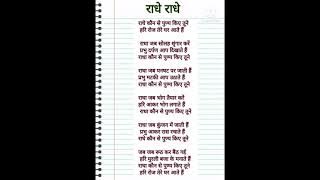 राधे राधे
राधे कौन से पुण्य किए तूने
हरि रोज तेरे घर आते हैं
राधा जब सोलह श्रृंगार करें
प्रभु दर्पण आप दिखाते हैं
राधा कौन से पुण्य किए तूने
राधा जब पनघट पर जाती हैं
प्रभु मटकी आप उठाते हैं
राधा कौन से पुण्य किए तूने
राधा जब भोग तैयार करें
हरि आकर भोग लगाते हैं
राधा कौन से पुण्य किए तूने
राधा जब कुंजन में जाती हैं
प्रभु आकर रास रचाते हैं
राधे कौन से पुण्य किए तूने
जब जब रूठ कर बैठ गई
हरि मुरली बजा के मनाते हैं
राधा कौन से पुण्य किए तूने
हरि रोज तेरे घर आते हैं